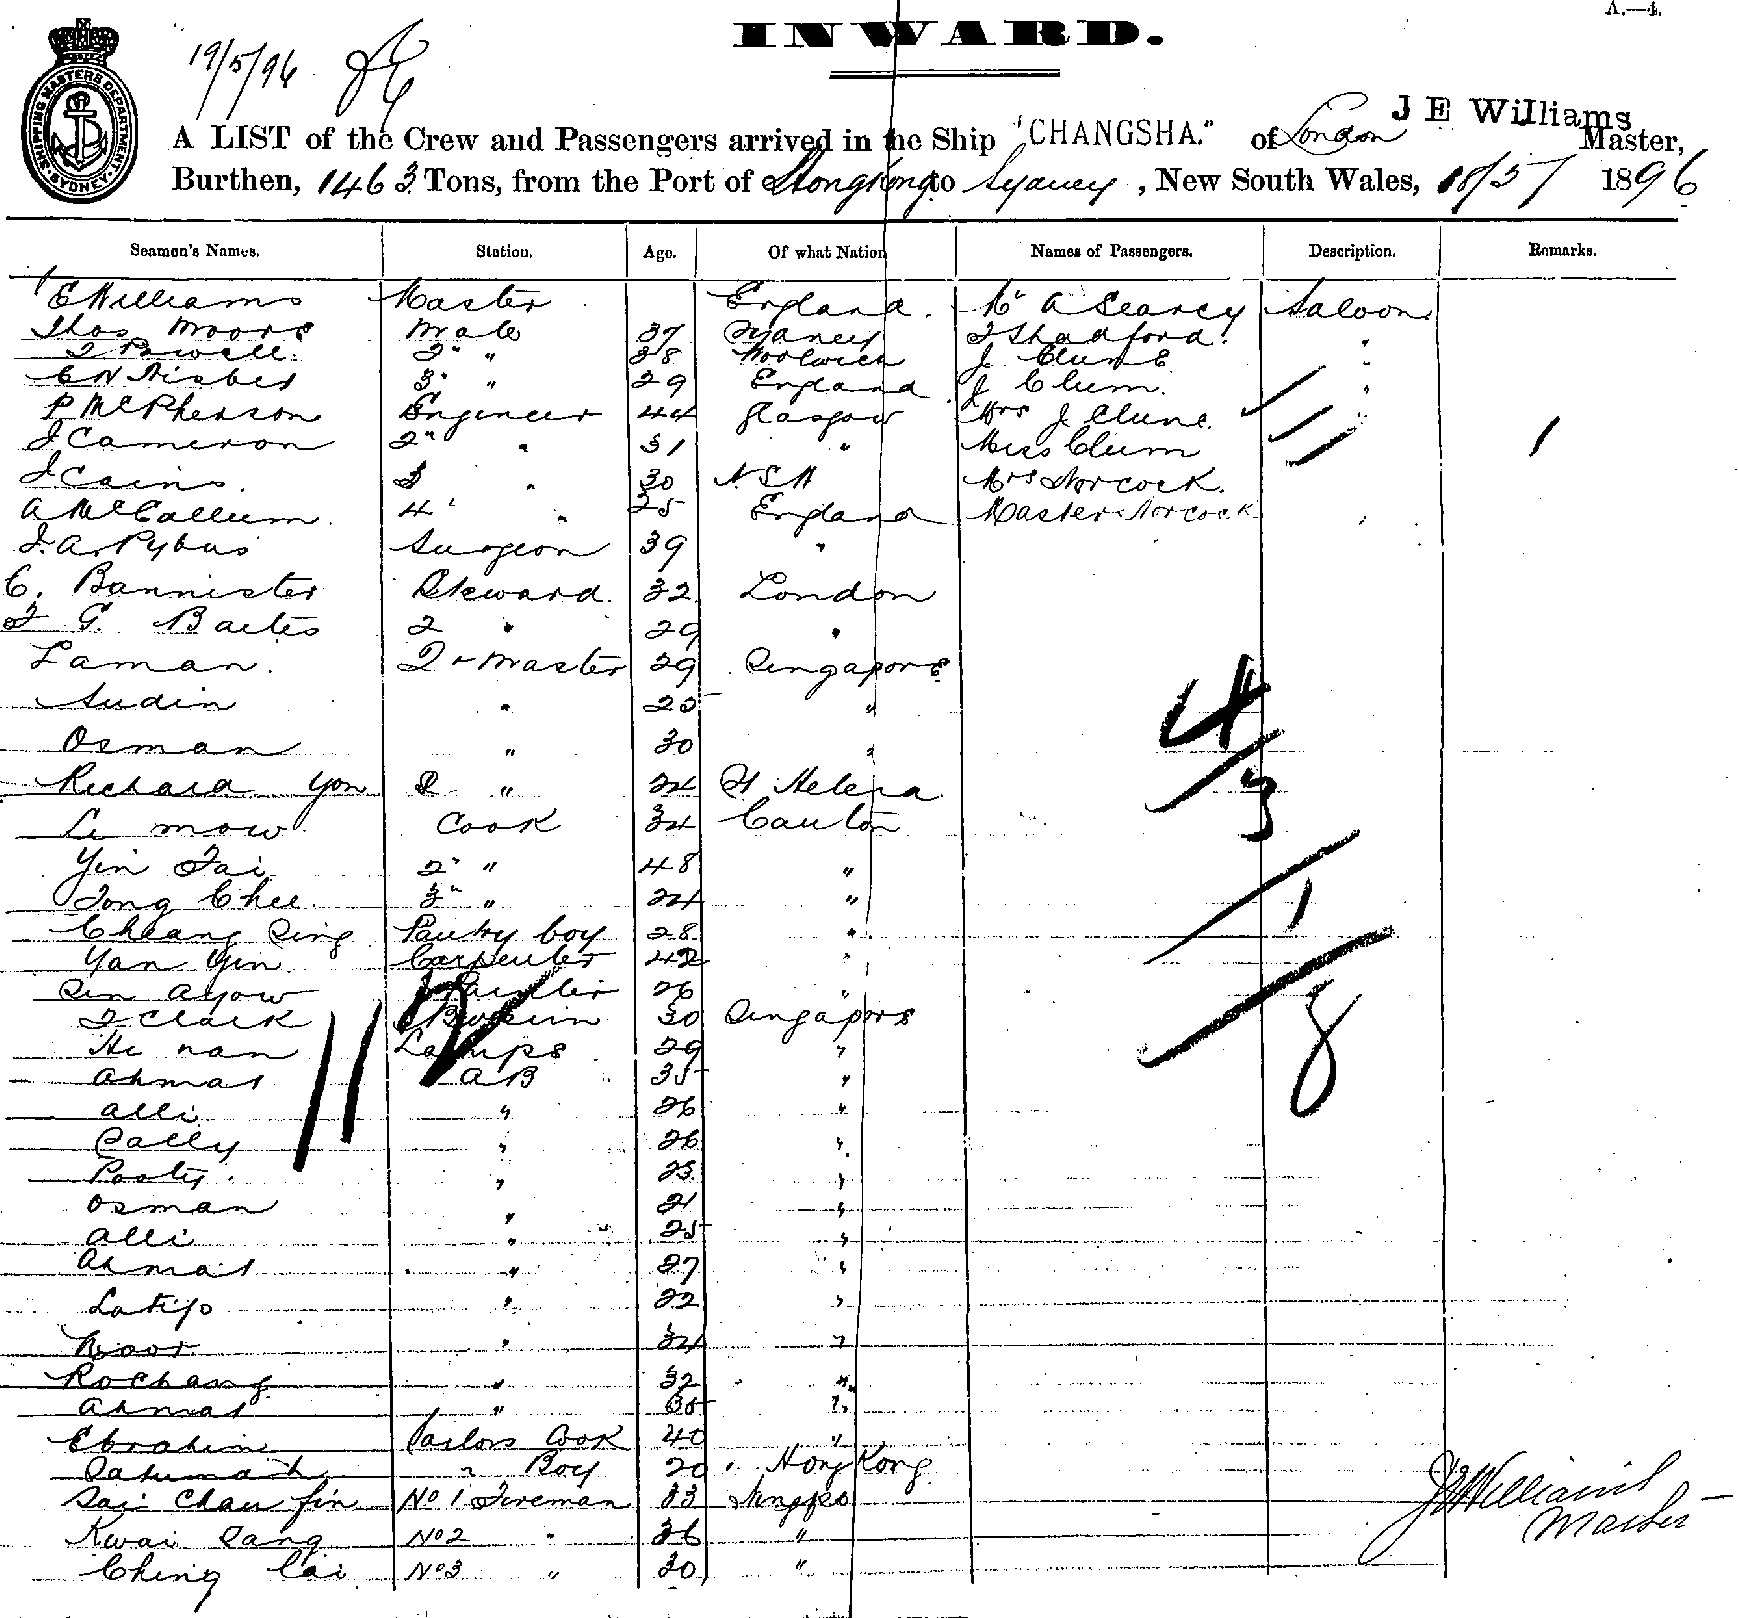 A.—4.
INWARD.
19/5/96
SHIPPING MASTERS DEPARTMENT SYDNEY
J E Williams
A LIST of the Crew and Passengers arrived in the Ship "CHANGSHA." of London Master,
Burthen, 1463 Tons, from the Port of Hongkong to Sydney, New South Wales, 18/5/ 1896
Seamen's Names. Station. Age. Of what Nation Names of Passengers. Description. Remarks.
E Williams Master England. Mr A Searcy Saloon
Thos Moore Mate 37 J Shadford.
Powell. 2" " 28 Woolwich J Clune
C N Nisbet 3" " 29 England J Clum.
P McPherson Engineer 44 Glasgow Mrs J Clune.
J Cameron 2" " 31 " Miss Clum
J Cains. 3 " 30 N.S.W Mrs Norcock.
A McCallum. 4 " 25 England Master Norcock
J. A. Pybus Surgeon 39 "
C. Bannister Steward. 32 London
G. Bartes 2 " 29 "
Laman. Qr Master 29 Singapore
Sudin " 25 "
Osman " 30 "
Richard Yon " 24 St Helena
Le mow Cook 34 Canton
Yin Tai 2" " 48 "
Tong Chee. 3" " 24 "
Cheang Sing Pantry boy 28 "
Yan Yin Carpenter 42 "
Sen Ayow 26 "
Clark 30 Singapore
He nan Lamps 29 "
Ahmat AB 35 "
Alli " 26 "
Sally " 26 "
" 23 "
Osman " 21 "
Alli " 25 "
Ahmat " 27 "
" 22 "
" 34 "
Rochang " 32 "
Ahmat " "
Ebrahim Sailors Cook 40 "
" Boy 20 Hong Kong
Sai Chau fin No 1 Fireman 33 Ningpo
Kwai Sang No 2 " 36 "
Ching Cai No 3 " 30 "
4/3/1/8
J E Williams
Master